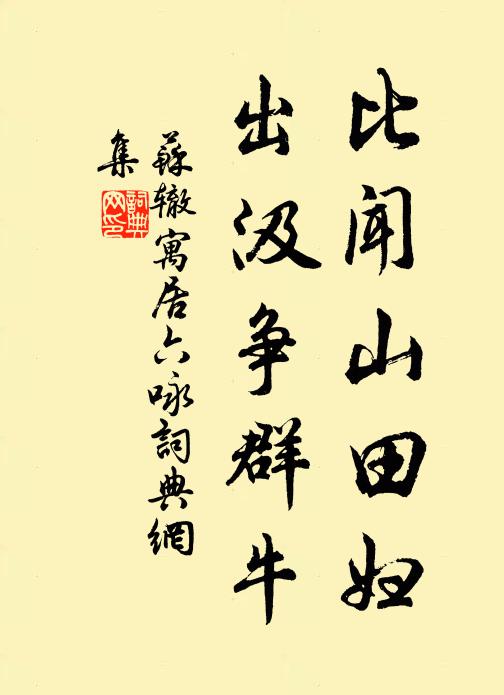 比闻山田妇
出汲争群牛
蘇辙寓居六咏詞典網
集
詞典
网印